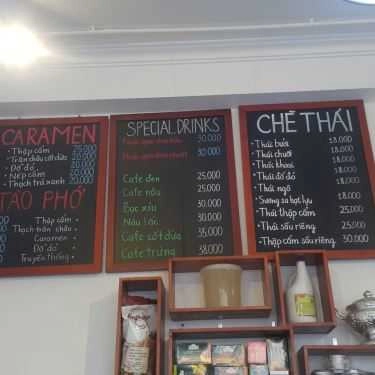 CARAMEN
• Thập cẩm 25.000
• Trân châu cốt dừa 20.000
• Đỗ đỏ 20.000
• Nếp cẩm 20.000
• Thạch trà xanh 20.000
TÀO PHỚ
Thập cẩm •
Thạch trân châu •
Caramen •
Đỗ đỏ •
Truyền thống •
SPECIAL DRINKS
30.000
30.000
Cafe đen 25.000
Cafe nâu 25.000
Bạc xỉu 30.000
Nâu lắc 30.000
Cafe cốt dừa 35.000
Cafe trứng 38.000
CHÈ THÁI
• Thái bưởi 18.000
• Thái chuối 18.000
• Thái khoai 18.000
• Thái đỗ đỏ 18.000
• Thái ngô 18.000
• Sương sa hạt lựu 18.000
• Thái thập cẩm 25.000
• Thái sầu riêng 25.000
• Thập cẩm sầu riêng 30.000